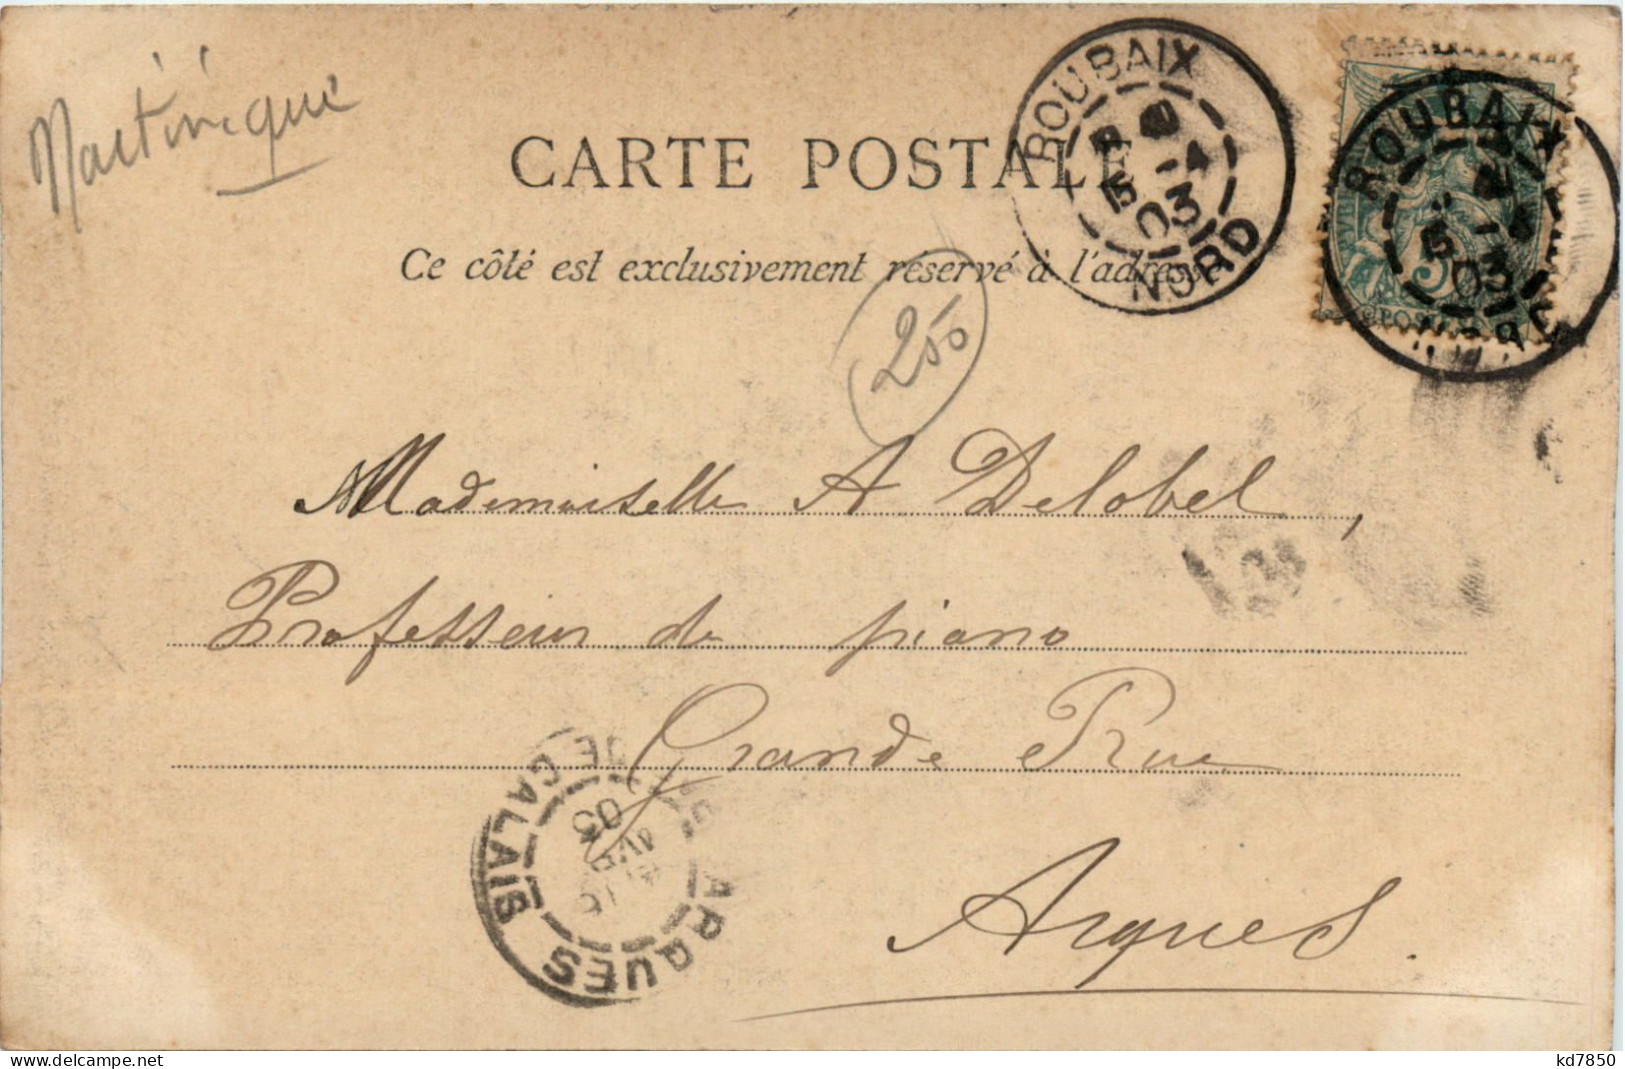 Martinique
CARTE POSTALE
Ce côté est exclusivement réservé à l'adresse
250
ROUBAIX
5 -4
03
NORD
ROUBAIX
5
03
NORD
5
POSTES
Mademoiselle A Delobel,
Professeur de piano
Grande Rue
Arques.
ARQUES
PAS DE CALAIS
AVRIL
03
kd7850